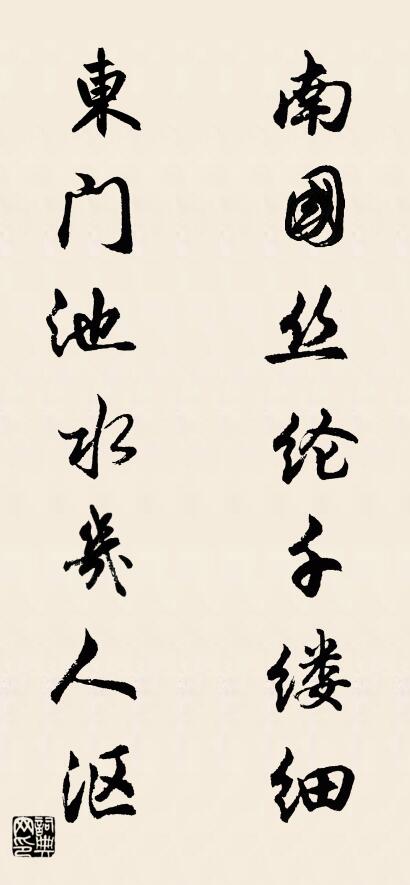 南國丝纶千缕细
東门池水幾人沤
詞典網印